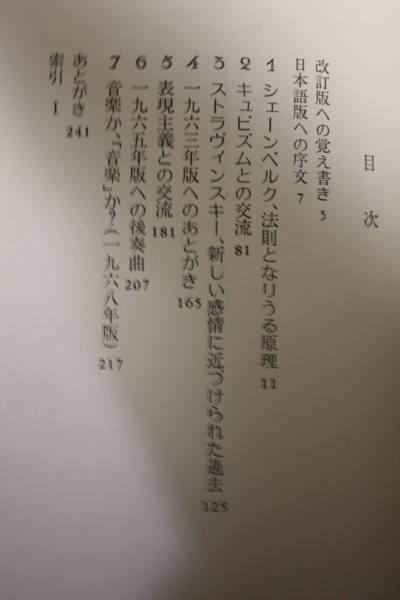 目次
改訂版への覚え書き 5
日本語版への序文 7
1 シェーンベルク、法則となりうる原理 11
2 キュビズムとの交流 81
3 ストラヴィンスキー、新しい感情に近づけられた過去 125
4 一九六三年版へのあとがき 165
5 表現主義との交流 181
6 一九六五年版への後奏曲 207
7 音楽か、『音楽』か?(一九六八年版) 217
あとがき 241
索引 I